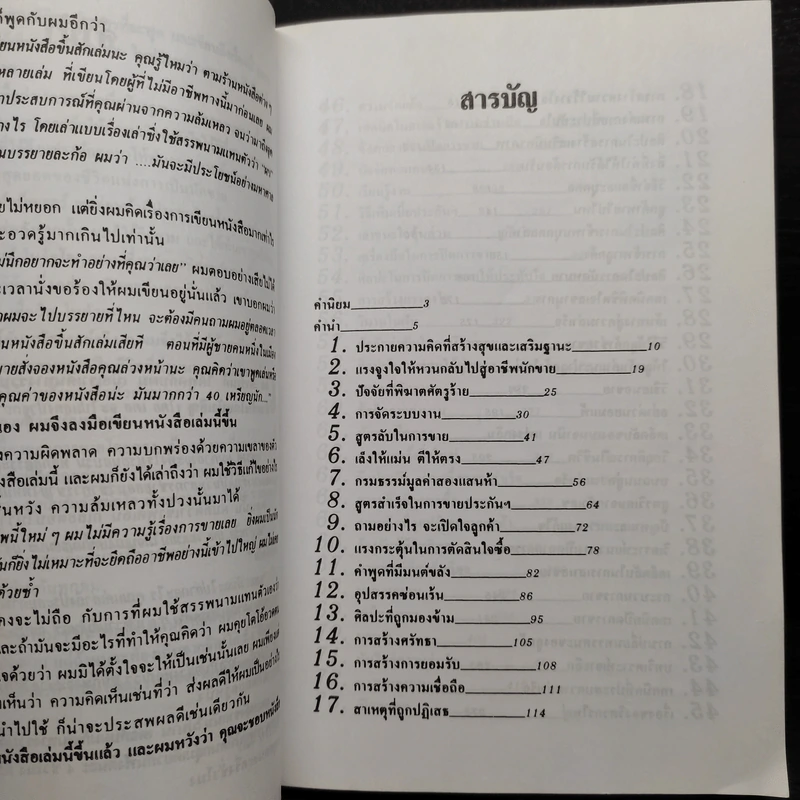 ก็พูดกับผมอีกว่า
ขียนหนังสือขึ้นสักเล่มนะ คุณรู้ไหมว่า ตามร้านหนังสือต่างๆ
หลายเล่ม ที่เขียนโดยผู้ที่ไม่มีอาชีพทางนี้มาก่อนเลย
าประสบการณ์ที่คุณผ่านจากความล้มเหลว จนว่ามาถึงจุด
างไร โดยเล่าแบบเรื่องเล่าซึ่งใช้สรรพนามแทนตัวว่า "ผม"
นบรรยายละก้อ ผมว่า ....มันจะมีประโยชน์อย่างมหาศาล
ยไม่หยอก แต่ยิ่งผมคิดเรื่องการเขียนหนังสือมากเท่าไร
ะอวดรู้มากเกินไปเท่านั้น
ม่นึกอยากจะทำอย่างที่คุณว่าเลย" ผมตอบอย่างเสียไม่ได้
ะเวลานั่งขอร้องให้ผมเขียนอยู่นั่นแล้ว เขาบอกผมว่า
าผมจะไปบรรยายที่ไหน จะต้องมีคนถามผมอยู่ตลอดเวลา
นหนังสือขึ้นสักเล่มเสียที ตอนที่มีผู้ชายคนหนึ่งในเมือง
ายสั่งจองหนังสือคุณล่วงหน้านะ คุณคิดว่าเขาพูดเล่นหรือ
คุณค่าของหนังสือน่ะ มันมากกว่า 40 เหรียญนัก..."
เอง ผมจึงลงมือเขียนหนังสือเล่มนี้ขึ้น
งความผิดพลาด ความบกพร่องด้วยความเขลาของตัว
งสือเล่มนี้ และผมก็ยังได้เล่าถึงว่า ผมใช้วิธีแก้ไขอย่างไร
้นหวัง ความล้มเหลวทั้งปวงนั้นมาได้
พนี้ใหม่ๆ ผมไม่มีความรู้เรื่องการขายเลย ยิ่งผมเป็นนัก
ันก็ยิ่งไม่เหมาะที่จะยึดถืออาชีพอย่างนี้เข้าไปใหญ่
ด้วยซ้ำ
คงจะไม่ถือ กับการที่ผมใช้สรรพนามแทนตัวเองว่า
และถ้ามันจะมีอะไรที่ทำให้คุณคิดว่า ผมคุยโตโอ้อวด
ใจด้วยว่า ผมมิได้ตั้งใจจะให้เป็นเช่นนั้นเลย ผมเพียงแต่
เห็นว่า ความคิดเห็นเช่นที่ว่า ส่งผลดีให้ผมเป็นอย่างไร
นำไปใช้ ก็น่าจะประสพผลดีเช่นเดียวกัน
หนังสือเล่มนี้ขึ้นแล้ว และผมหวังว่า คุณจะชอบหนังสือ
สารบัญ
คำนิยม 3
คำนำ 5
1. ประกายความคิดที่สร้างสุขและเสริมฐานะ 10
2. แรงจูงใจให้หวนกลับไปสู่อาชีพนักขาย 19
3. ปัจจัยที่พิฆาตศัตรูร้าย 25
4. การจัดระบบงาน 30
5. สูตรลับในการขาย 41
6. เล็งให้แม่น ตีให้ตรง 47
7. กรมธรรม์มูลค่าสองแสนห้า 56
8. สูตรสำเร็จในการขายประกันฯ 64
9. ถามอย่างไร จะเปิดใจลูกค้า 72
10. แรงกระตุ้นในการตัดสินใจซื้อ 78
11. คำพูดที่มีมนต์ขลัง 82
12. อุปสรรคซ่อนเร้น 86
13. ศิลปะที่ถูกมองข้าม 95
14. การสร้างศรัทธา 105
15. การสร้างการยอมรับ 108
16. การสร้างความเชื่อถือ 111
17. สาเหตุที่ถูกปฏิเสธ 114